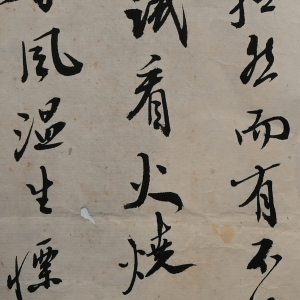 然而有不
試看火燒
風温生慓